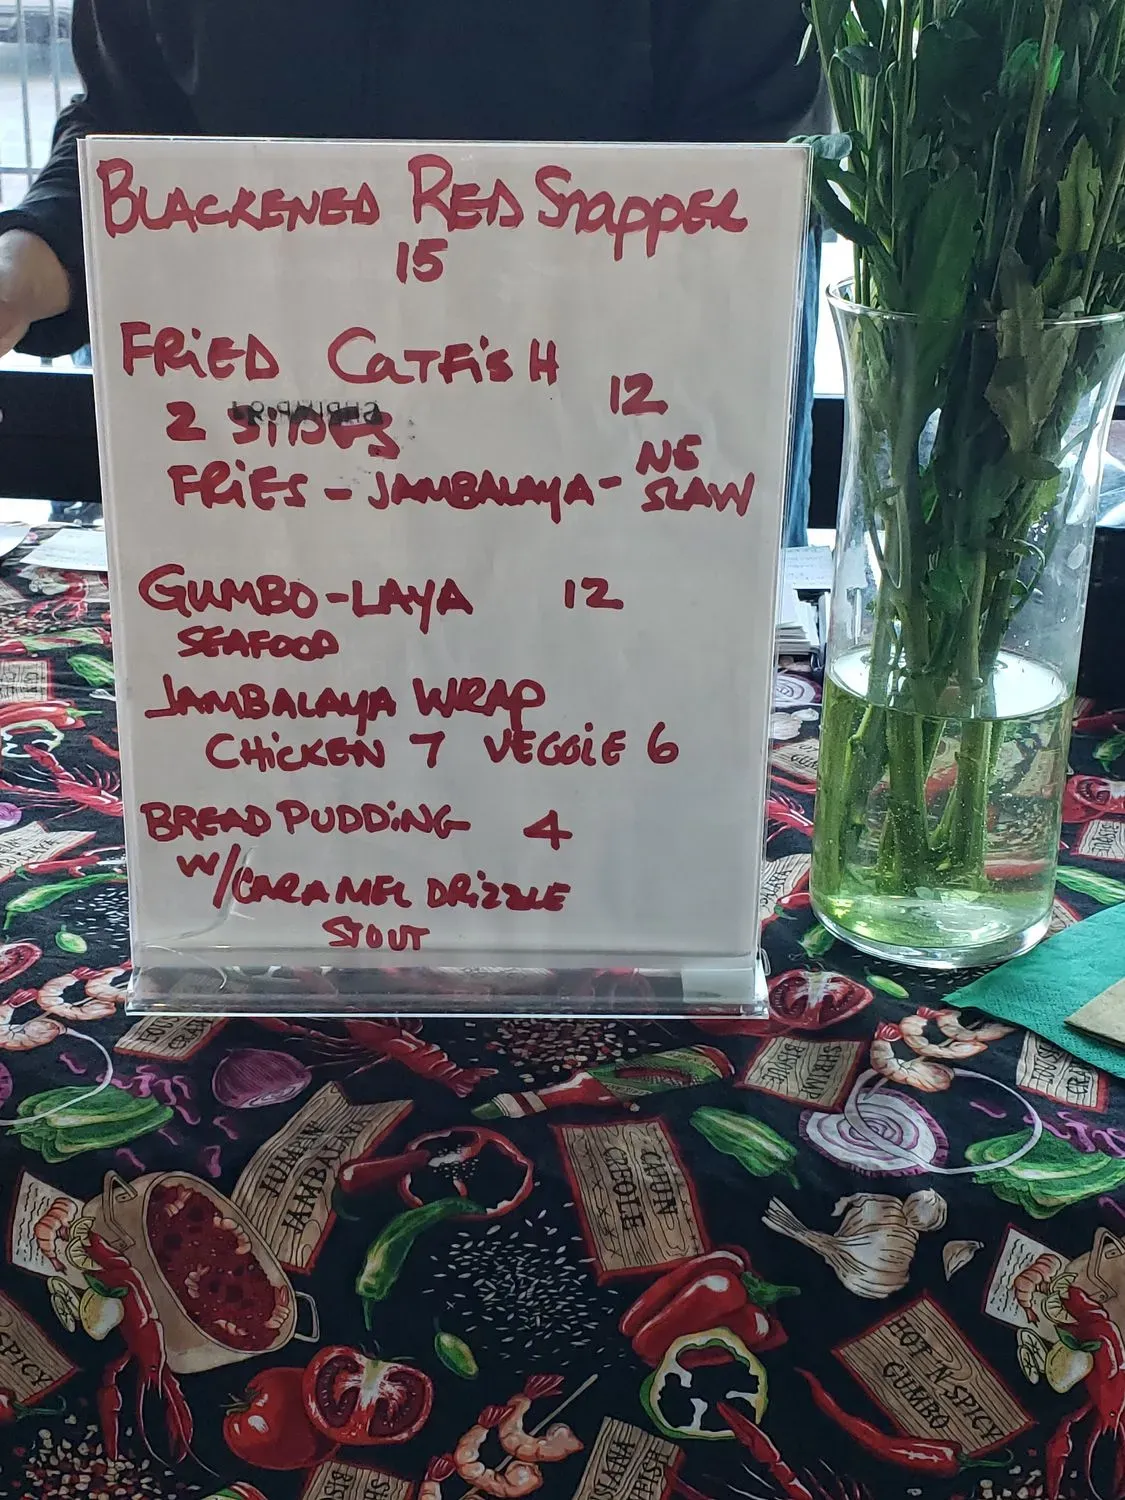 BLACKENED RED SNAPPER
15
FRIED CATFISH 12
2 SIDES
FRIES - JAMBALAYA - NE SLAW
GUMBO-LAYA 12
SEAFOOD
JAMBALAYA WRAP
CHICKEN 7 VEGGIE 6
BREAD PUDDING 4
W/CARAMEL DRIZZLE
STOUT
JAMBALAYA
CAJUN
CREOLE
HOT 'N SPICY
GUMBO
SHRIMP
BISQUE
SPICY